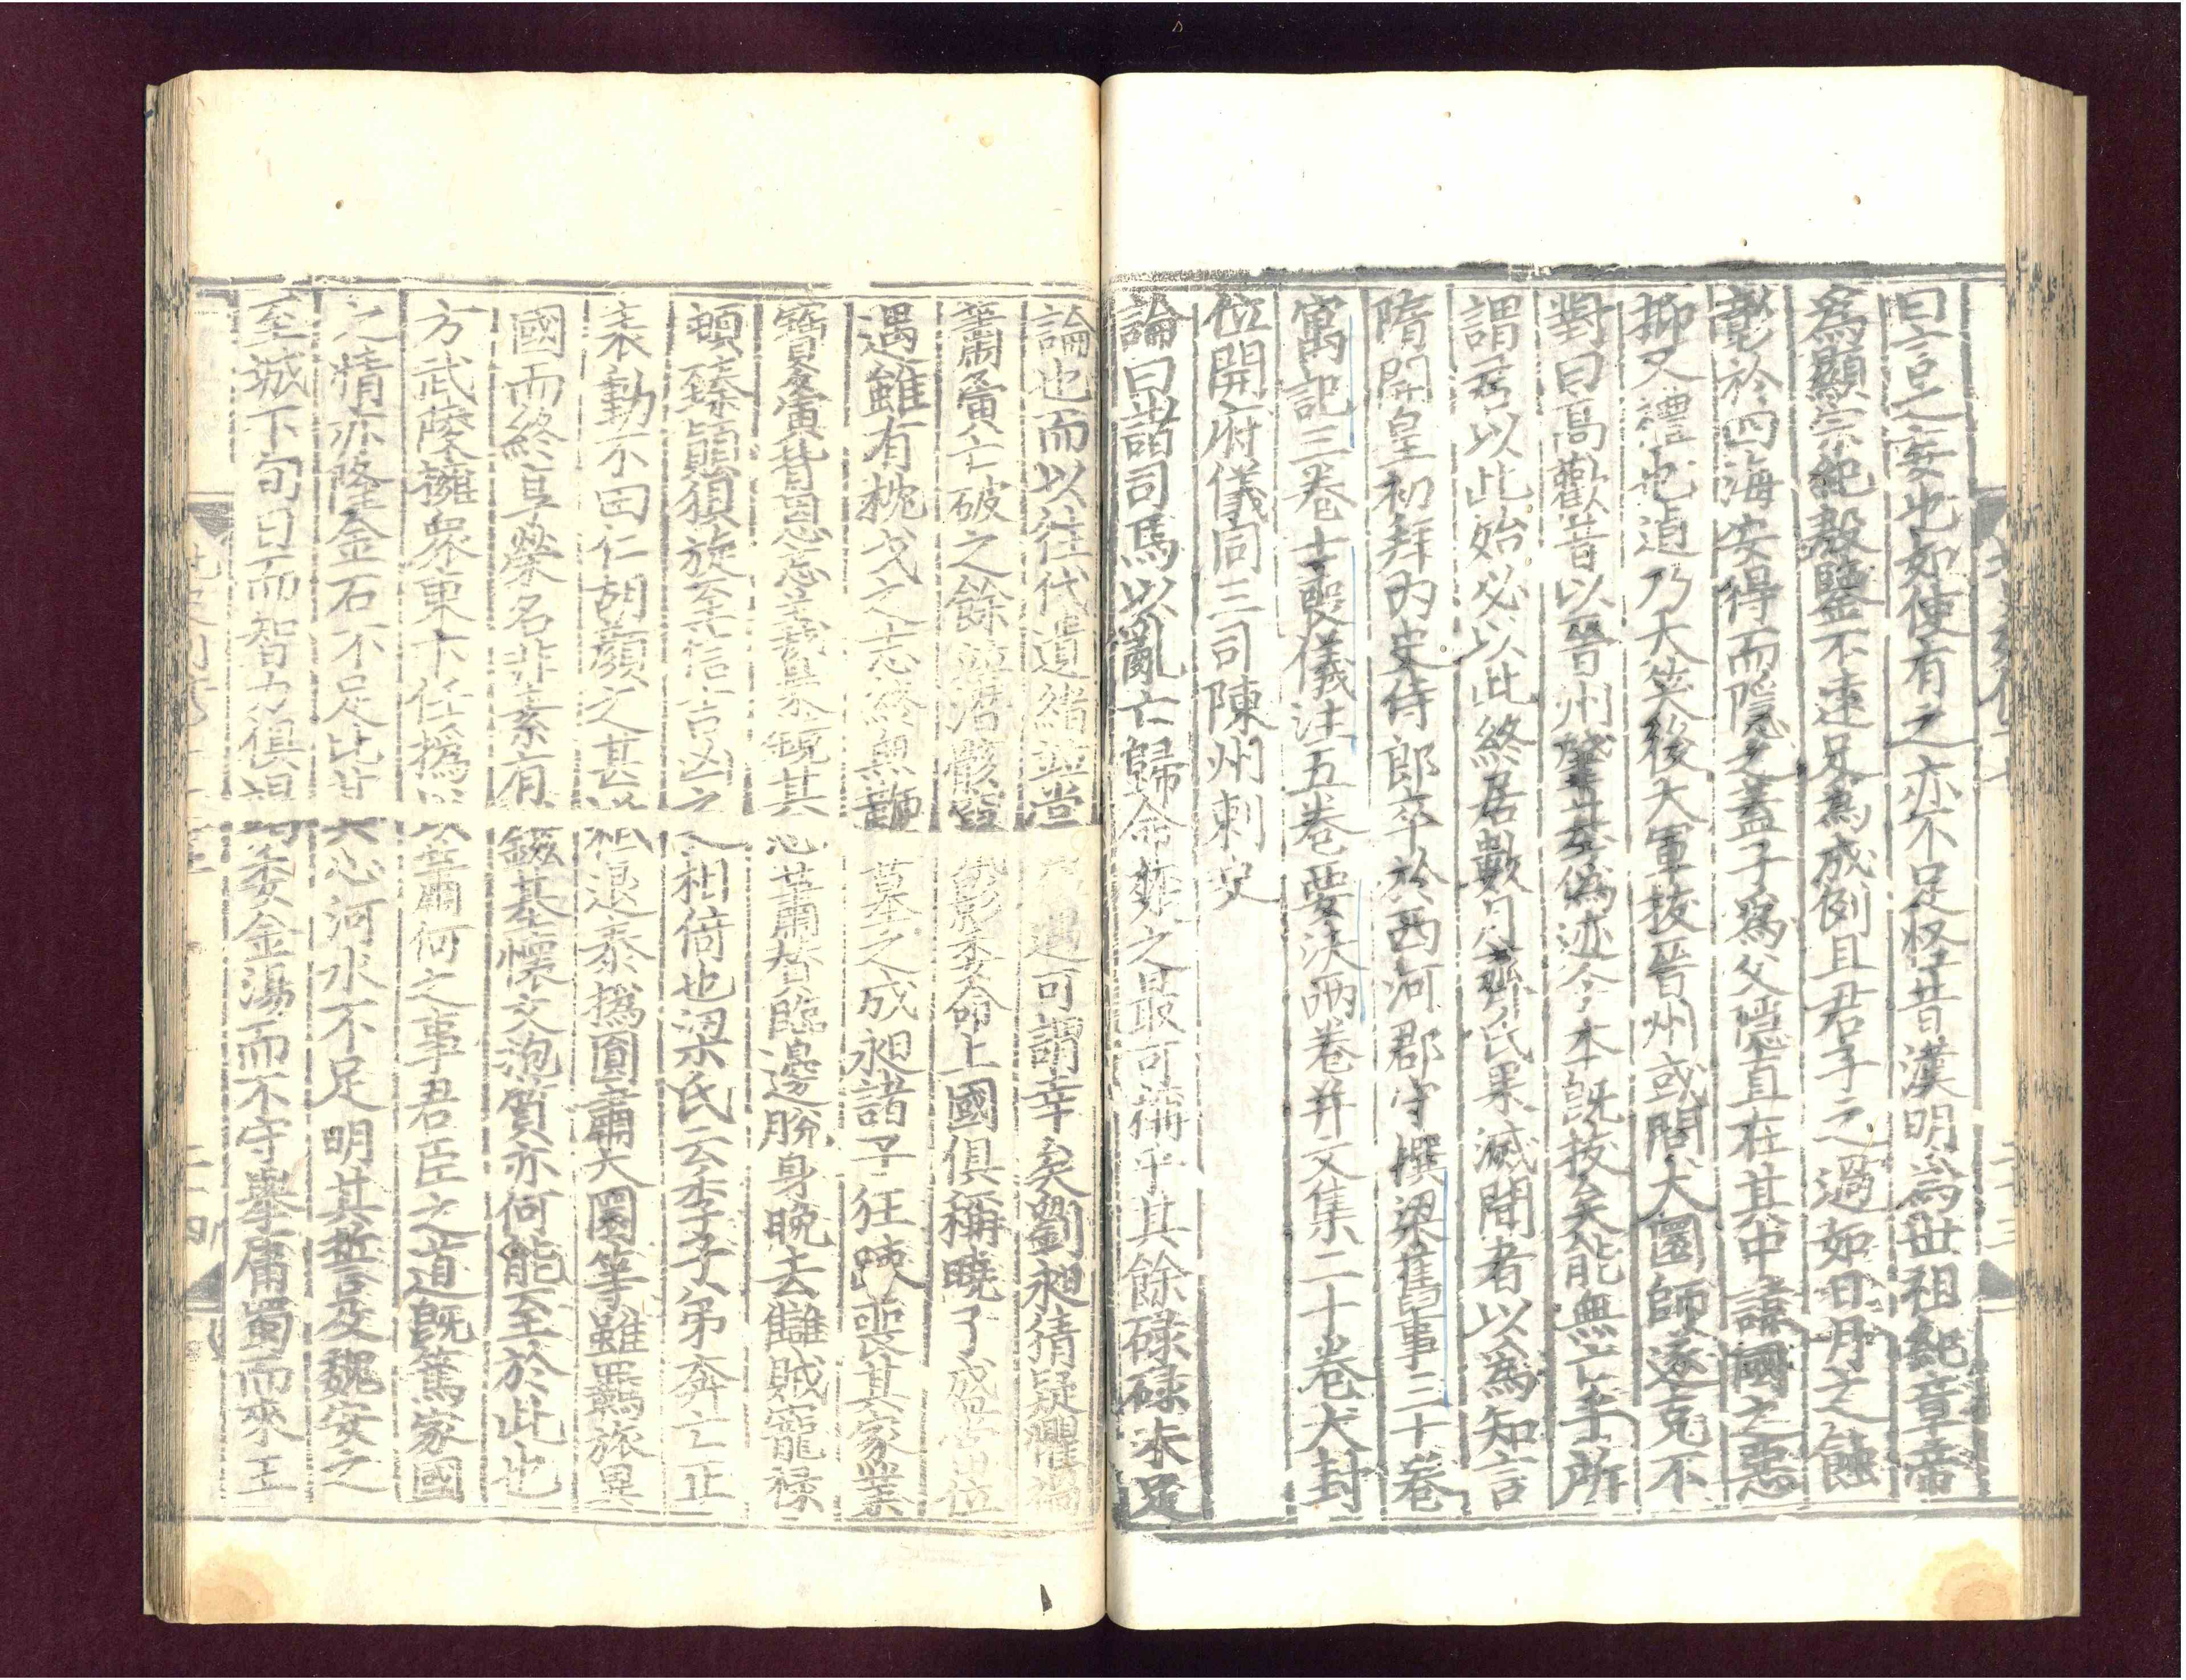 曰言之妄也如使有之亦不足怪昔漢明為世祖紀章帝
為顯宗紀殷鑒不遠足為成例且君子之過如日月之蝕
彰於四海安得而隱之蓋子為父隱直在其中諱國之惡
抑又禮也逌乃大笑後大軍拔晉州或問大圜師遂克不
對曰高歡昔以晉州肇基偽迹今本既拔矣能無亡乎所
謂君以此始必以此終居數月齊氏果滅聞者以為知言
隋開皇初拜内史侍郎卒於西河郡守撰梁舊事三十卷
寓記三卷士喪儀注五卷要決兩卷并文集二十卷大封
位開府儀同三司陳州刺史
論曰諸司馬以亂亡歸命楚之最可稱乎其餘碌碌未足
論也而以往代遺緒並當 遇可謂幸矣劉昶猜疑懼禍
蕭夤亡破之餘並潛骸竄影委命上國俱稱曉了咸當寵位
遇雖有枕戈之志終無鞭墓之成昶諸子狂踈喪其家業
寶夤背恩忘義梟獍其心蕭贊臨邊脫身晚去讎賊寵祿
頓臻顛狽旋至信吉凶之相倚也梁氏云季子弟奔亡正
表動不由仁胡顏之甚 祗退泰撝圓肅大圜等雖羈旅異
國而終享榮名非素有 鎡基懷文抱質亦何能至於此也
方武陵擁眾東下任撝以蕭何之事君臣之道既篤家國
之情亦隆金石不足比其心河水不足明其誓及魏安之
至城下旬日而智力俱竭委金湯而不守舉庸蜀而來王